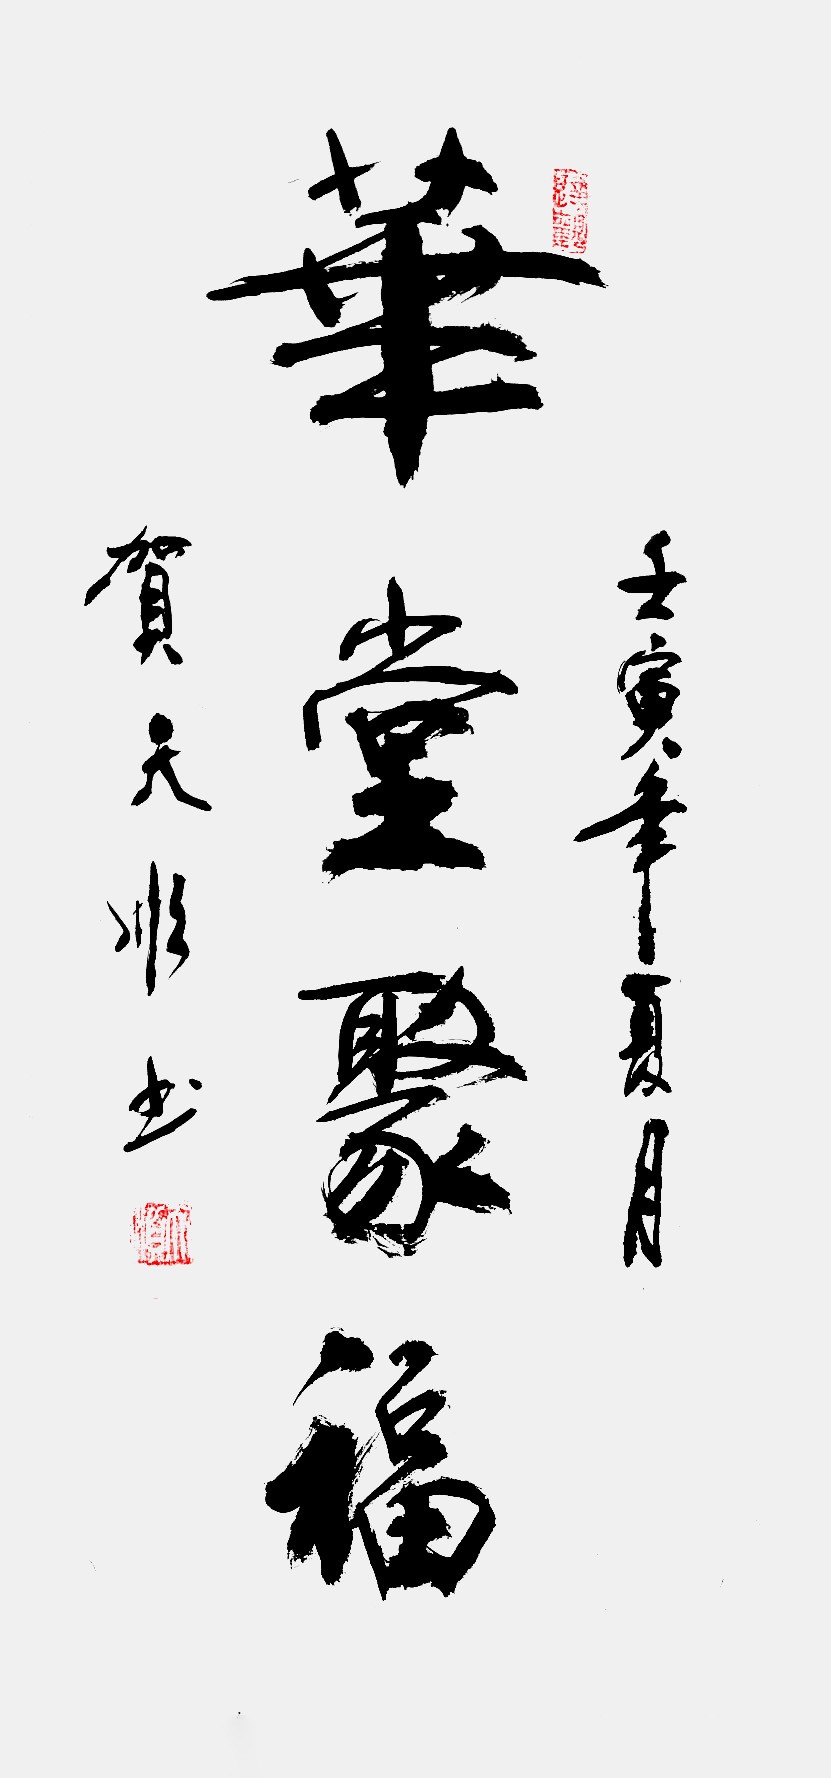 華堂聚福
壬寅年夏月
賀天順书